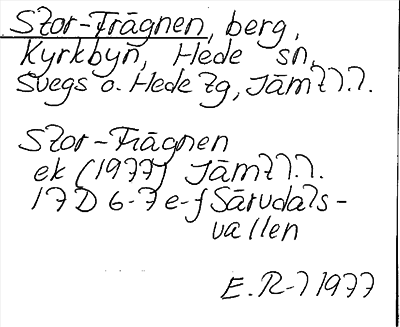 Stor-Frägnen, berg,
Kyrkbyn, Hede sn,
Svegs o. Hede tg, Jämtl.l.
Stor-Frägnen
ek (1977) Jämtl.l.
17D 6-7 e-f Särvdals-
vallen
E.R-l 1977